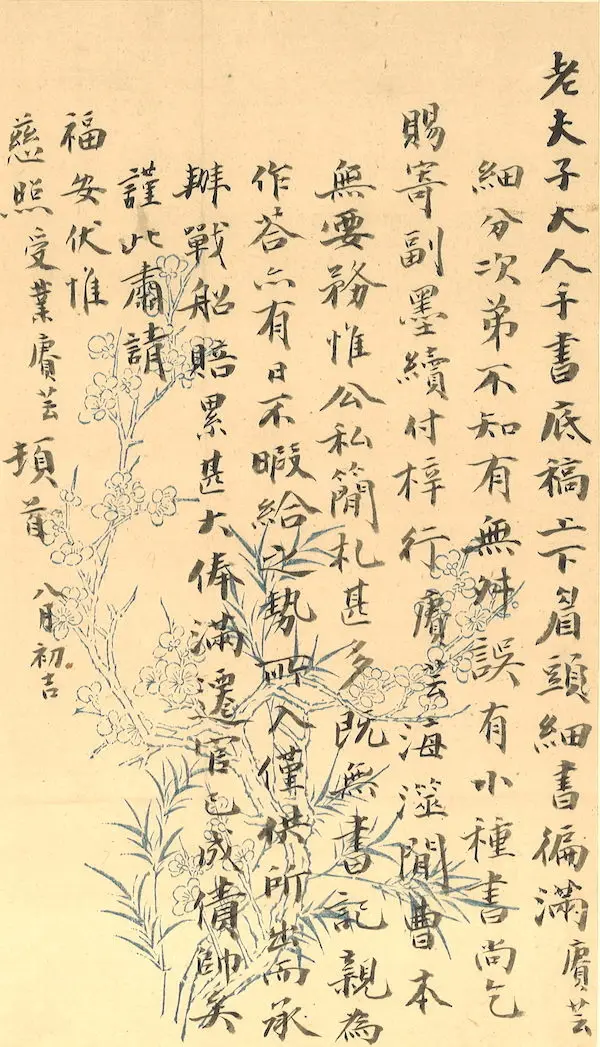 老夫子大人手書底稿上下眉頭細書徧滿賡芸
細分次弟不知有無舛誤有小種書尚乞
賜寄副墨續付梓行賡芸海澨閒曹本
無要務惟公私簡札甚多既無書記親為
作荅亦有日不暇給之勢所入僅供所出而承
辦戰船賠累甚大俸滿遷官已成債帥矣
謹此肅請
福安伏惟
慈照受業賡芸頓首八月初吉